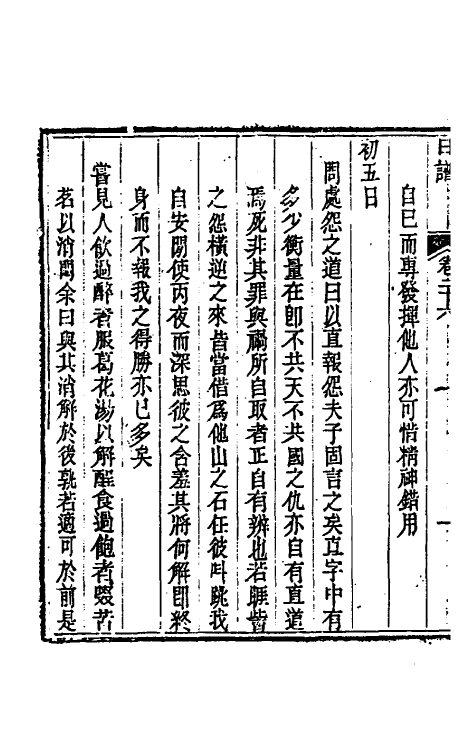 日譜 卷二十六
自已而專發揮他人亦可惜精神錯用
初五日
問處怨之道曰以直報怨夫子固言之矣直字中有
多少衡量在卽不共天不共國之仇亦自有直道
焉死非其罪與禍所自取者正自有辨也若睚眥
之怨橫逆之來皆當借爲他山之石任彼叫跳我
自安閒使丙夜而深思彼之含羞其將何解卽終
身而不報我之得勝亦已多矣
嘗見人飲過醉者服葛花湯以解酲食過飽者啜苦
茗以消悶余曰與其消解於後孰若適可於前是